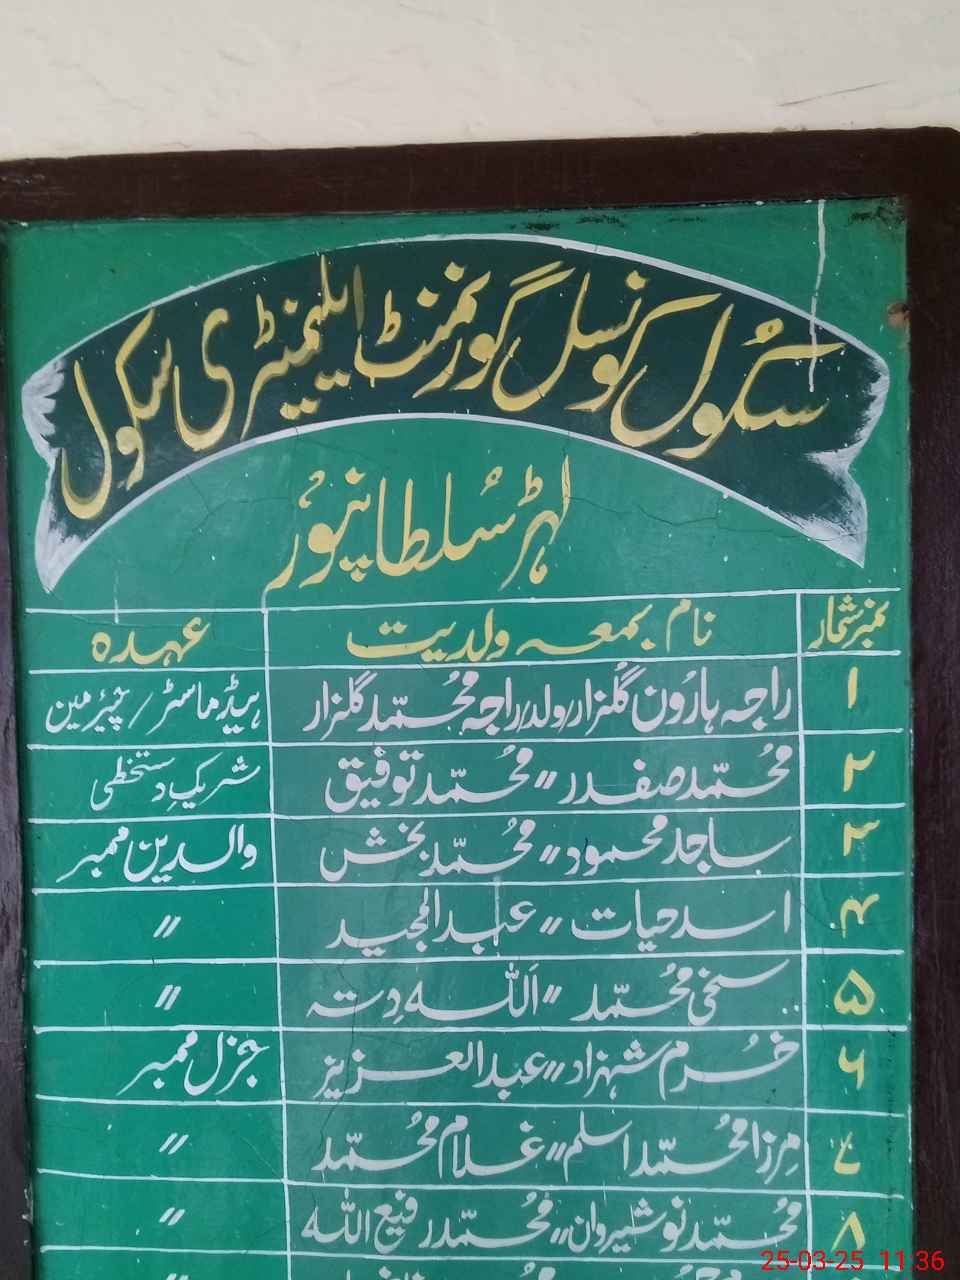 سکول کونسل گورنمنٹ ایلیمنٹری سکول
لہڑ سُلطانپور
نمبر شمار نام بمعہ ولدیت عہدہ
۱ راجہ ہارُون گلزار ولد راجہ محُمّد گلزار ہیڈ ماسٹر / چئیرمین
۲ محُمّد صفدر 〃 محُمّد توفیق شریکِ دستخطی
۳ ساجد محمود 〃 محُمّد بخش والدین ممبر
۴ اسد حیات 〃 عبدالمجید 〃
۵ سخی محُمّد 〃 اَللہ دِتہ 〃
۶ خُرم شہزاد 〃 عبدالعزیز جنرل ممبر
۷ مِرزا محُمّد اسلم 〃 غلام محُمّد 〃
۸ محُمّد نوشیروان 〃 محُمّد رفیع اللہ 〃
25-03-25 11:36